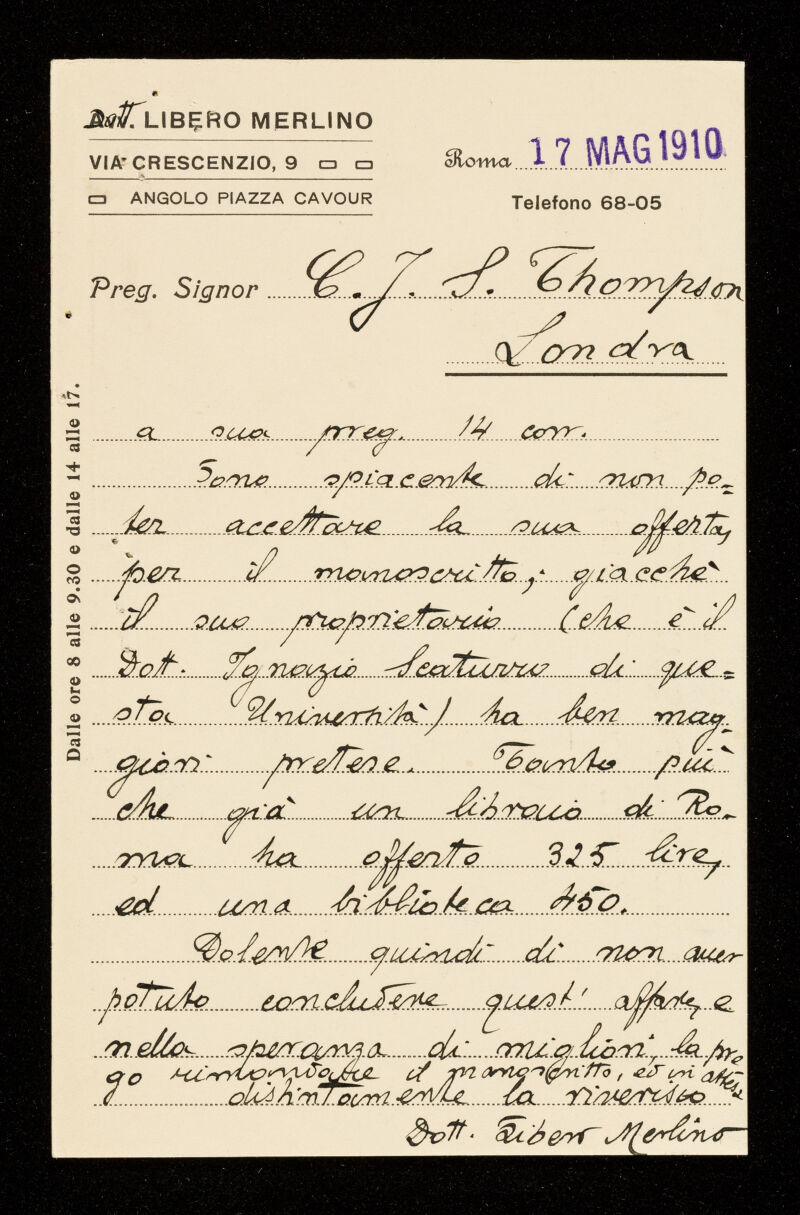 Dott. LIBERO MERLINO
VIA CRESCENZIO, 9
ANGOLO PIAZZA CAVOUR
Roma 17 MAG 1910
Telefono 68-05
Preg. Signor C. J. S. Thompson
Londra
Dalle ore 8 alle 9.30 e dalle 14 alle 17.
a sua preg. 14 corr.
Sono spiacente di non po=
ter accettare la sua offerta,
per il manoscritto, giacchè
il suo proprietario (che è il
Dott. Ignazio Scaturro di que=
sta Università) ha ben mag-
giori pretese. Tanto più
che già un libraio di Ro-
ma ha offerto 325 lire,
ed una biblioteca 450.
Dolente quindi di non aver
potuto concludere quest' affare, e
nella speranza di migliori, la pre
go rimandare il manoscritto, ed in attesa
distintamente la riverisco
Dott. Libero Merlino